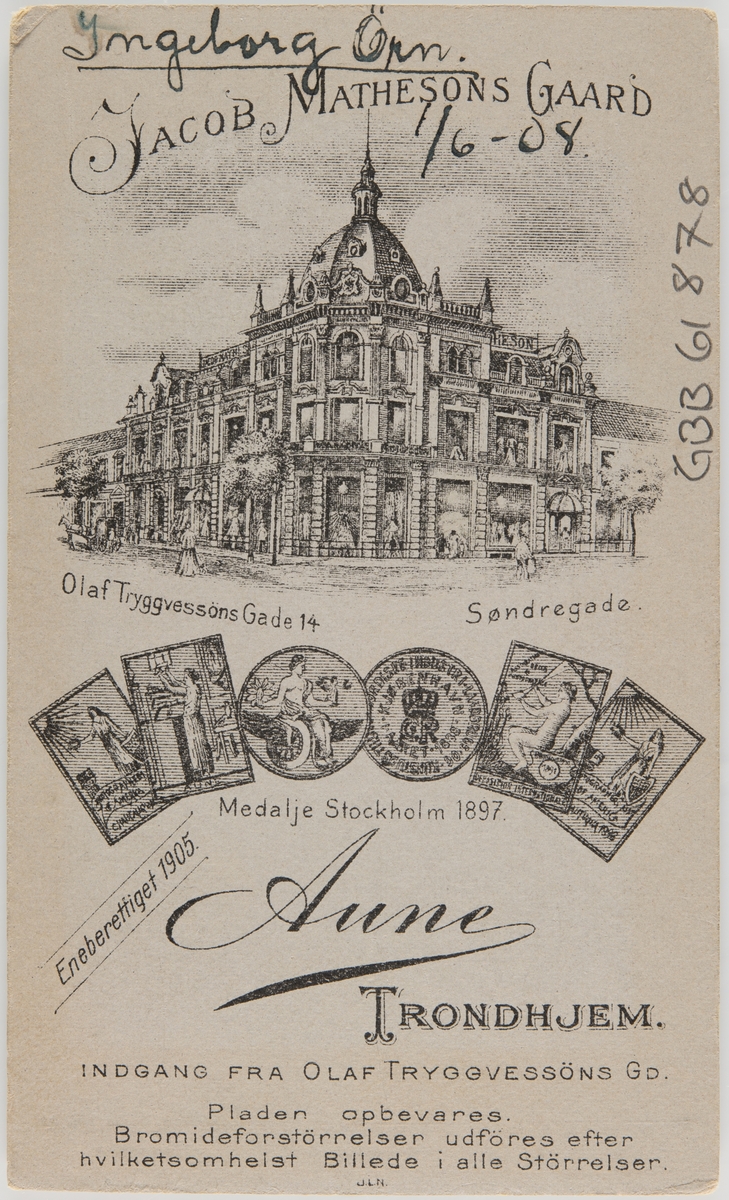 Ingeborg Örn.
JACOB MATHESONS GAARD
1/6-08.
GBB 61 878
HESON
Olaf Tryggvessöns Gade 14
Søndregade.
Medalje Stockholm 1897.
Eneberettiget 1905.
Aune
TRONDHJEM.
INDGANG FRA OLAF TRYGGVESSÖNS GD.
Pladen opbevares.
Bromideforstörrelser udföres efter
hvilketsomhelst Billede i alle Störrelser.
J.L.N.